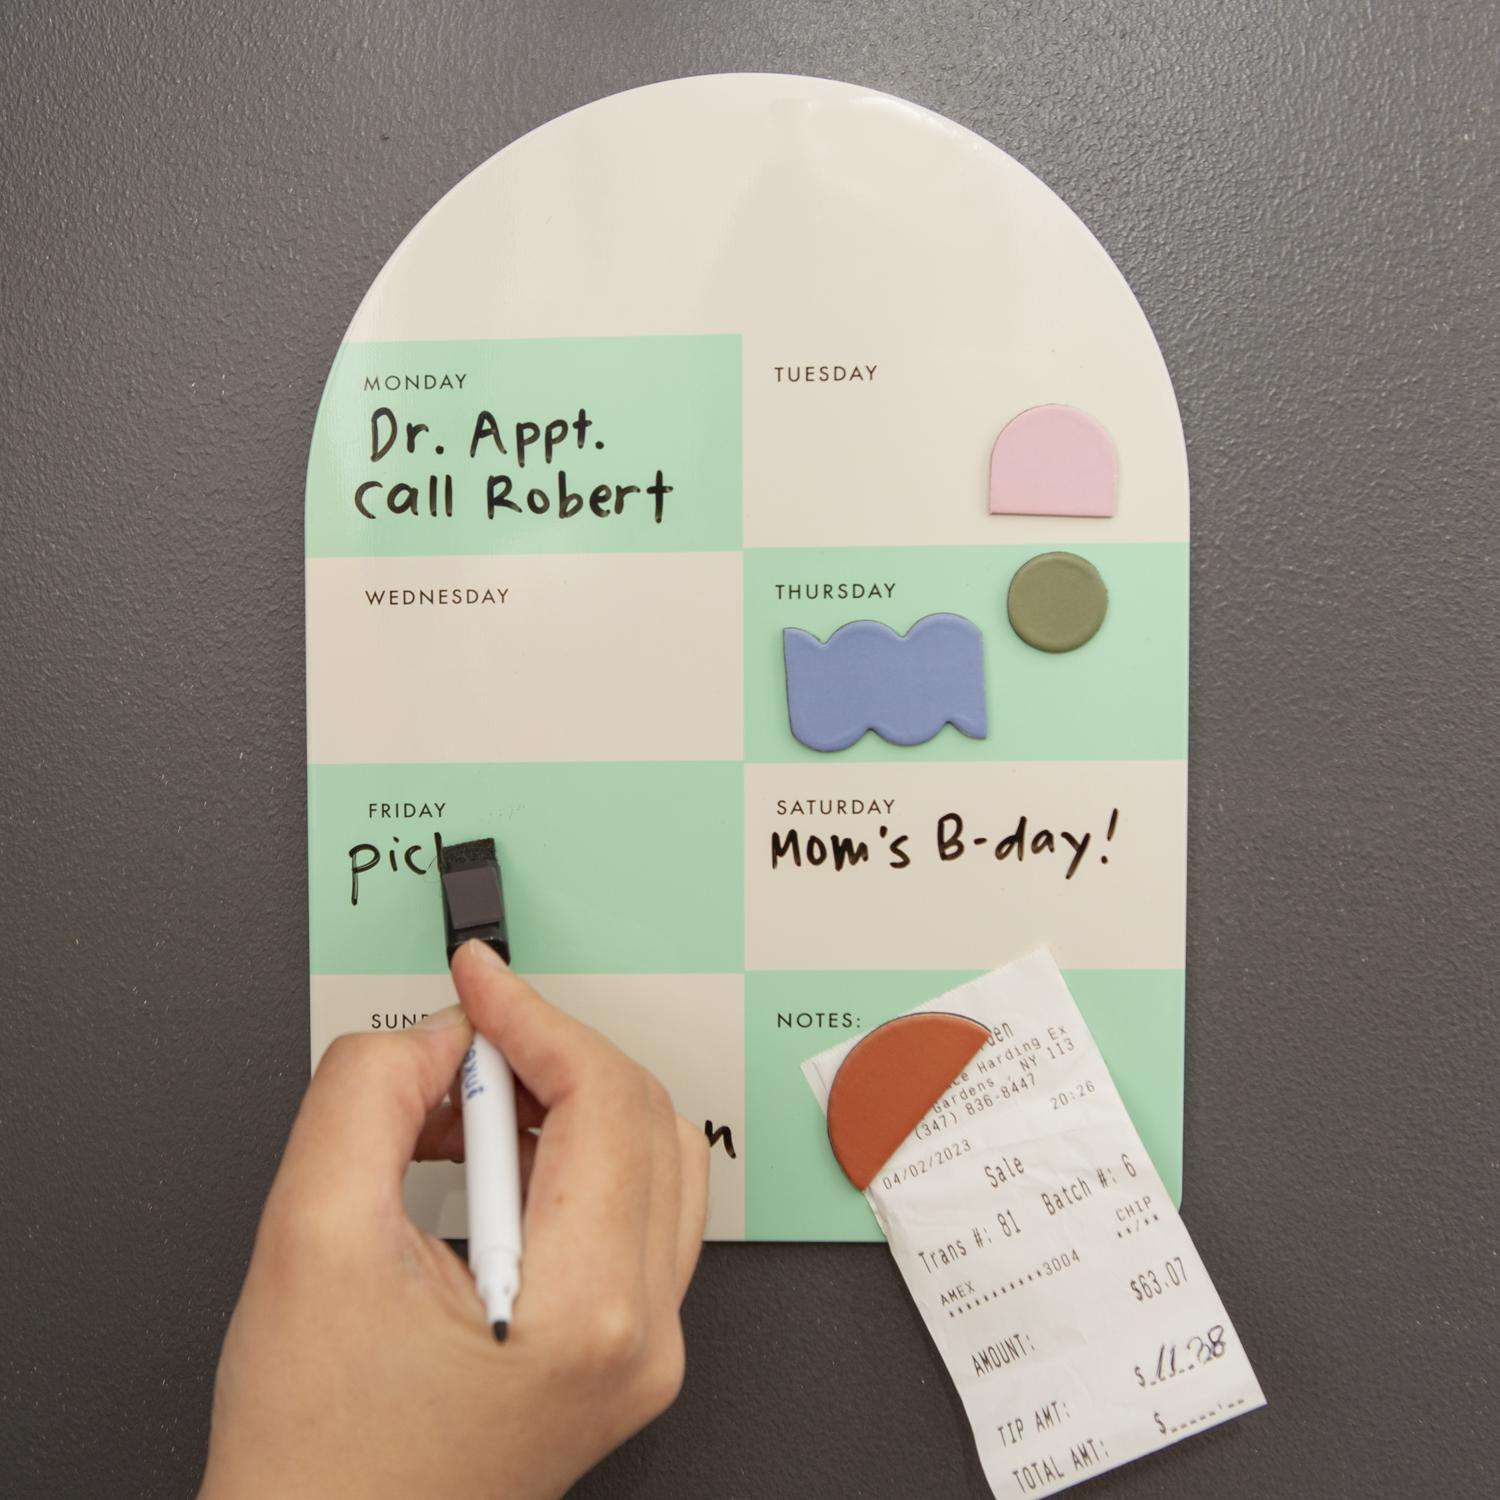 MONDAY
Dr. Appt.
call Robert
TUESDAY
WEDNESDAY
THURSDAY
FRIDAY
pick
SATURDAY
Mom's B-day!
SUN
n
NOTES:
Harding Ex
Gardens, NY 113
(347) 836-8447
04/02/2023 20:26
Sale
Trans #: 81 Batch #: 6
AMEX CHIP
***********3004 **/**
AMOUNT: $63.07
TIP AMT: $ 11.38
TOTAL AMT: $